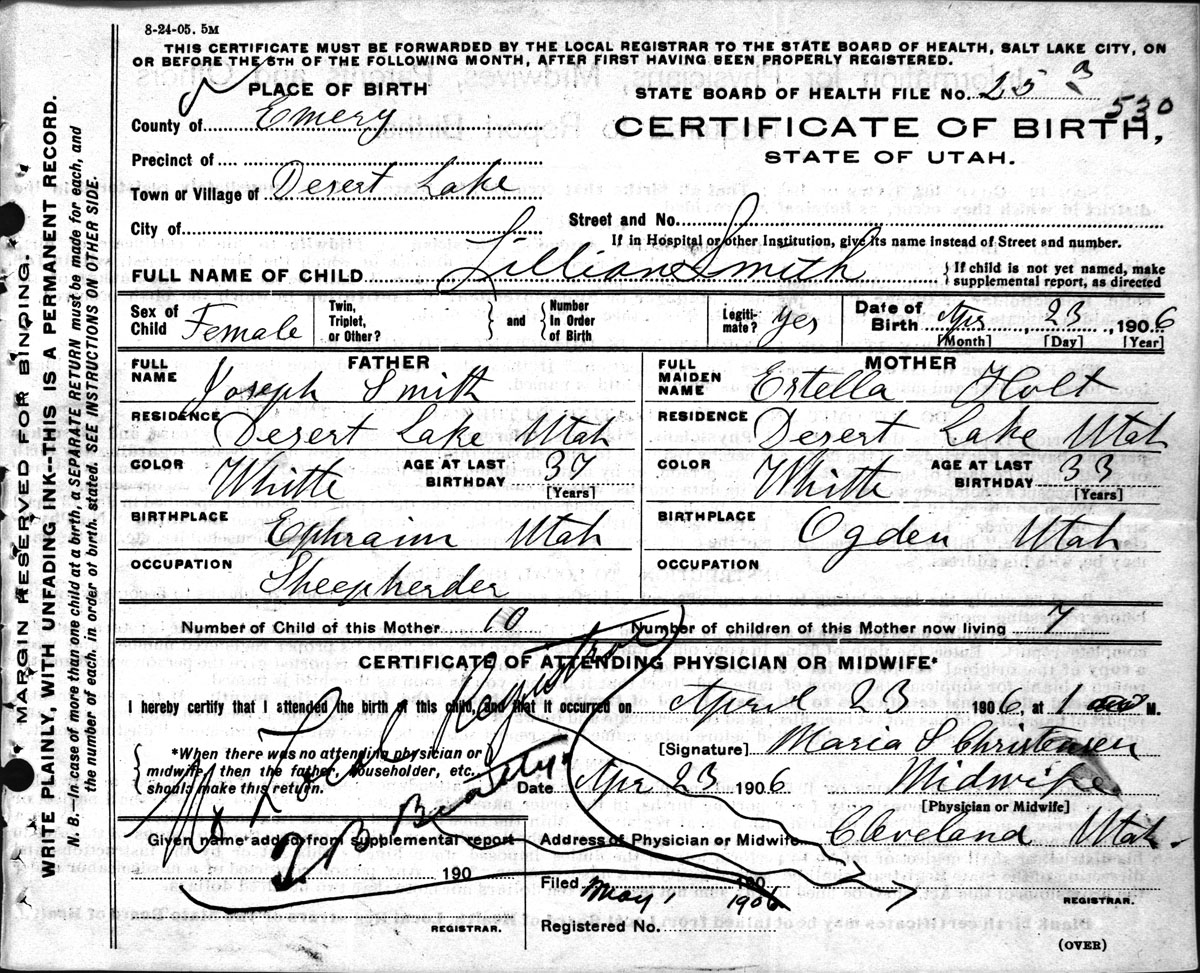 8-24-05. 5M
THIS CERTIFICATE MUST BE FORWARDED BY THE LOCAL REGISTRAR TO THE STATE BOARD OF HEALTH, SALT LAKE CITY, ON
OR BEFORE THE 5TH OF THE FOLLOWING MONTH, AFTER FIRST HAVING BEEN PROPERLY REGISTERED.
PLACE OF BIRTH
STATE BOARD OF HEALTH FILE No. 25 3
530
County of Emery
CERTIFICATE OF BIRTH,
STATE OF UTAH.
Precinct of
Town or Village of Desert Lake
City of
Street and No.
If in Hospital or other Institution, give its name instead of Street and number.
FULL NAME OF CHILD Lillian Smith
} If child is not yet named, make
supplemental report, as directed
Sex of Child Female
Twin, Triplet, or Other? } and { Number In Order of Birth
Legiti-mate? Yes
Date of Birth Apr, 23, 1906
[Month] [Day] [Year]
FATHER
FULL NAME Joseph Smith
RESIDENCE Desert Lake Utah
COLOR Whitte
AGE AT LAST BIRTHDAY 37
[Years]
BIRTHPLACE Ephraim Utah
OCCUPATION Sheepherder
MOTHER
FULL MAIDEN NAME Estella Holt
RESIDENCE Desert Lake Utah
COLOR Whitte
AGE AT LAST BIRTHDAY 33
[Years]
BIRTHPLACE Ogden Utah
OCCUPATION
Number of Child of this Mother 10
Number of children of this Mother now living 7
CERTIFICATE OF ATTENDING PHYSICIAN OR MIDWIFE*
I hereby certify that I attended the birth of this child, and that it occurred on April 23 1906, at 1 M.
{ *When there was no attending physician or
midwife, then the father, householder, etc.,
should make this return. }
[Signature] Maria S Christensen
Date Apr 23 1906.
Midwife
[Physician or Midwife]
Given name added from supplemental report
190
REGISTRAR.
Address of Physician or Midwife Cleveland Utah.
Filed May 1 190 1906
REGISTRAR.
Registered No.
(OVER)
Local Registrar
MARGIN RESERVED FOR BINDING.
WRITE PLAINLY, WITH UNFADING INK--THIS IS A PERMANENT RECORD.
N. B.--In case of more than one child at a birth, a SEPARATE RETURN must be made for each, and
the number of each, in order of birth, stated. SEE INSTRUCTIONS ON OTHER SIDE.